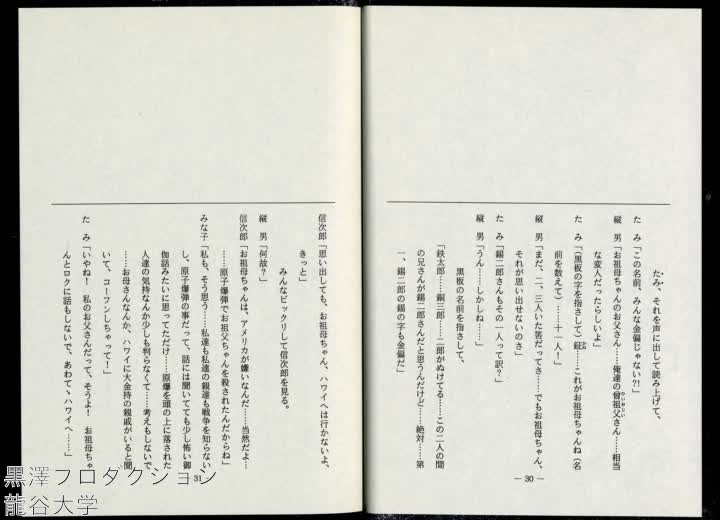 たみ、それを声に出して読み上げて、
たみ「この名前、みんな金偏じゃない?!」
縦男「お祖母ちゃんのお父さん……俺達の曾祖父さん……相当
な変人だったらしいよ」
たみ「(黒板の字を指さして)鉦……これがお祖母ちゃんね(名
前を数えて)……十一人!」
縦男「まだ、二、三人いた筈だってさ……でもお祖母ちゃん、
それが思い出せないのさ」
たみ「錫二郎さんもその一人って訳?」
縦男「うん……しかしね……」
黒板の名前を指さして、
「鉄太郎……銅三郎……二郎がぬけてる……この二人の間
の兄さんが錫二郎さんだと思うんだけど……絶対……第
一、錫二郎の錫の字も金偏だ」
— 30 —
信次郎「思い出しても、お祖母ちゃん、ハワイへは行かないよ、
きっと」
みんなビックリして信次郎を見る。
縦男「何故?」
信次郎「お祖母ちゃんは、アメリカが嫌いなんだ……当然だよ…
……原子爆弾でお祖父ちゃんを殺されたんだからね」
みな子「私も、そう思う……私達も私達の親達も戦争を知らない
し、原子爆弾の事だって、話には聞いてても少し怖い御
伽話みたいに思ってただけ……原爆を頭の上に落された
人達の気持なんか少しも判らなくて……考えもしないで
……お母さんなんか、ハワイに大金持の親戚がいると聞
いて、コーフンしちゃって!」
たみ「いやね! 私のお父さんだって、そうよ! お祖母ちゃ
んとロクに話もしないで、あわてゝハワイへ……」
31 —
黒澤プロダクション
龍谷大学